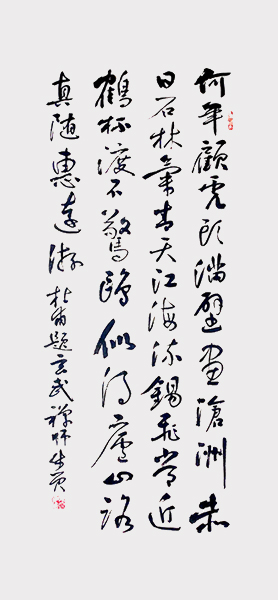 何年顧虎頭滿壁畫滄洲赤
日石林氣青天江海流錫飛常近
鶴杯渡不驚鷗似得廬山路
真随惠遠游 杜甫題玄武禪師